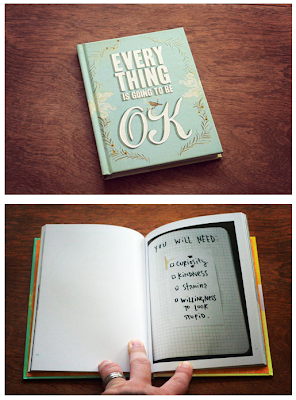 EVERY
THING
IS GOING TO BE
OK
YOU WILL NEED:
CURIOSITY
KINDNESS
STAMINA
WILLINGNESS
TO LOOK
STUPID.